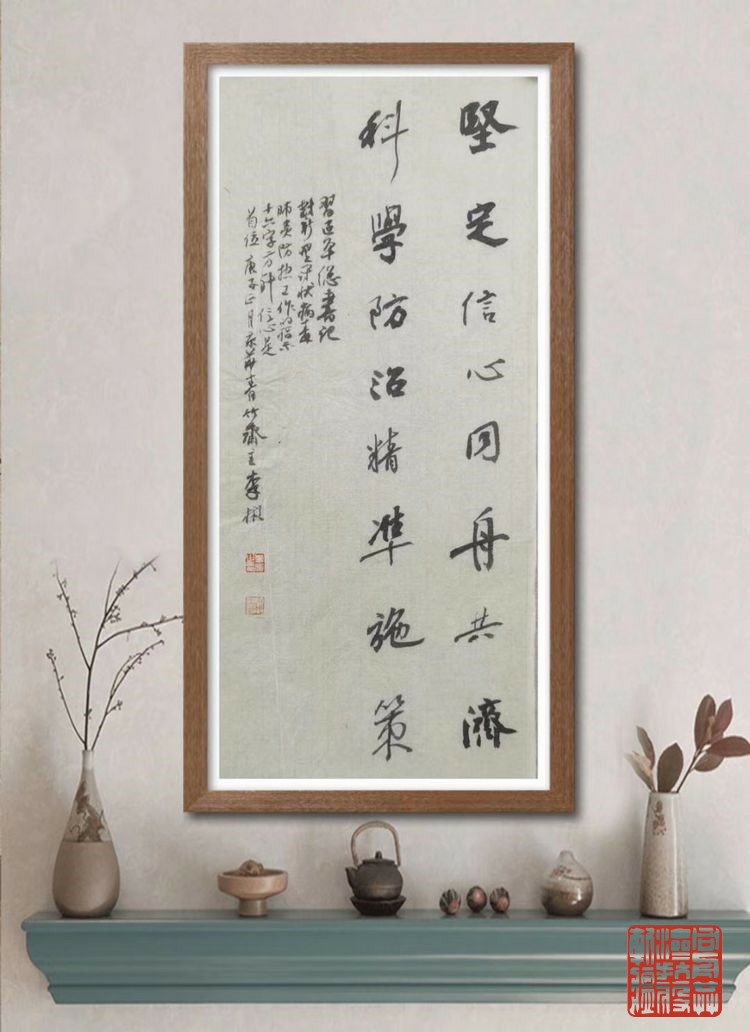 堅定信心同舟共濟
科學防治精準施策
習近平總書記
對新型冠狀病毒
肺炎防控工作的指示
十六字方針 信心是
首位 庚子正月 青竹齋主李
同舟共濟